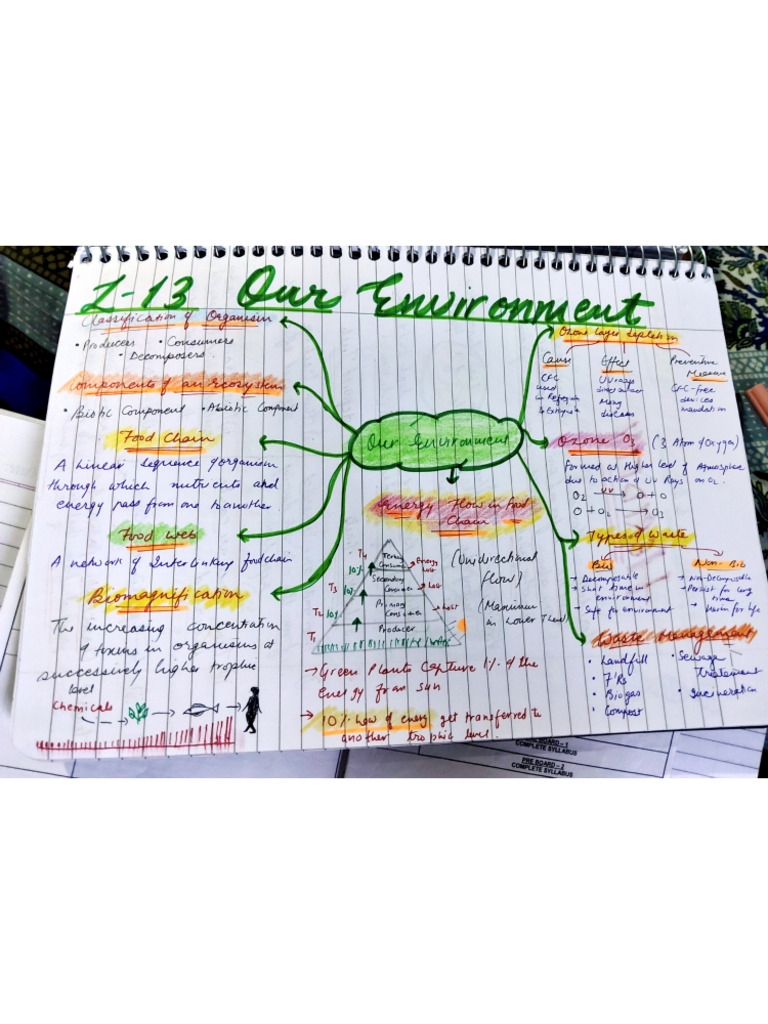 L-13 Our Environment
Classification of Organism
• Producers • Consumers
• Decomposers
Components of an Ecosystem
• Biotic Component • Abiotic Component
Food Chain
A Linear Sequence of organism
through which nutrients and
energy pass from one to another
Food Web
A network of Interlinking food chain
Biomagnification
The increasing concentration
of toxins in organisms at
successively higher trophic
level
Chemicals
Our Environment
Energy Flow in food
Chain
T4
10%
T3
10%
T2
10%
T1
Secondary
Consumer
Primary
Consumer
Producer
Energy
lost
lost
lost
(Unidirectional
flow)
(Maximum
in Lower
→ Green Plants Capture 1% of the
energy from sun
→ 10% law of energy get transferred to
another trophic level
Ozone layer depletion
Cause
CFC
used
in
Effect
UV rays
Preventive
Measure
CFC-free
devices
Ozone O3 (3 Atom of Oxygen)
Formed at Higher level of
due to action of UV Rays on O2
O2 UV → O + O
O + O2 → O3
Types of Waste
→ Decomposable
→ Short time in
environment
→ Safe for environment
→ Non-Decomposable
→ Persist for long
time
→ Harm for life
Waste Management
• Landfill
• Biogas
• Compost
• Sewage
• Incineration
PRE BOARD – 1
COMPLETE SYLLABUS
PRE BOARD – 2
COMPLETE SYLLABUS